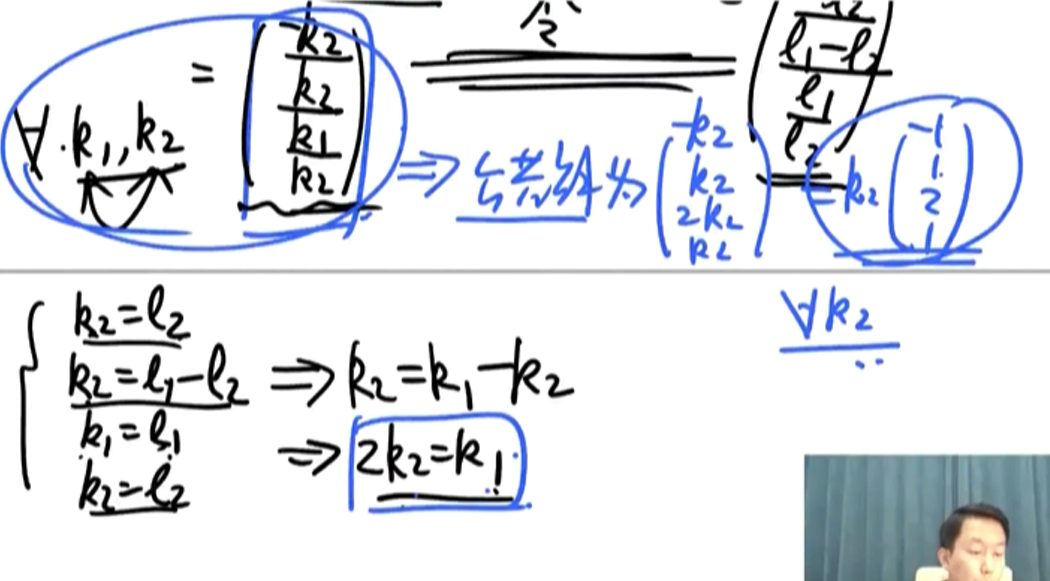 ∀ k₁, k₂ = (-k₂
k₂
k₁
k₂)
l₁-l₂
l₁
l₂)
⇒ 公共解为 (-k₂
k₂
2k₂
k₂) = k₂ (-1
1
2
1)
∀k₂
{ k₂=l₂
k₂=l₁-l₂ ⇒ k₂=k₁-k₂
k₁=l₁ ⇒ 2k₂=k₁
k₂=l₂